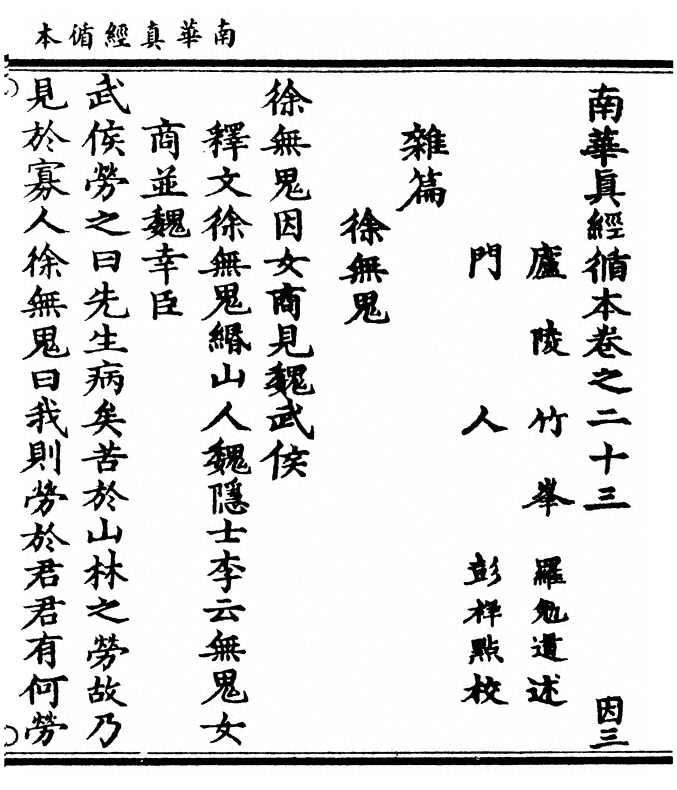 南華真經循本
南華眞經循本卷之二十三 因三
廬陵竹峯 羅勉道述
門人 彭祥點校
雜篇
徐無鬼
徐無鬼因女商見魏武侯
釋文徐無鬼緡山人魏隱士李云無鬼女
商並魏幸臣
武侯勞之曰先生病矣苦於山林之勞故乃
見於寡人徐無鬼曰我則勞於君君有何勞